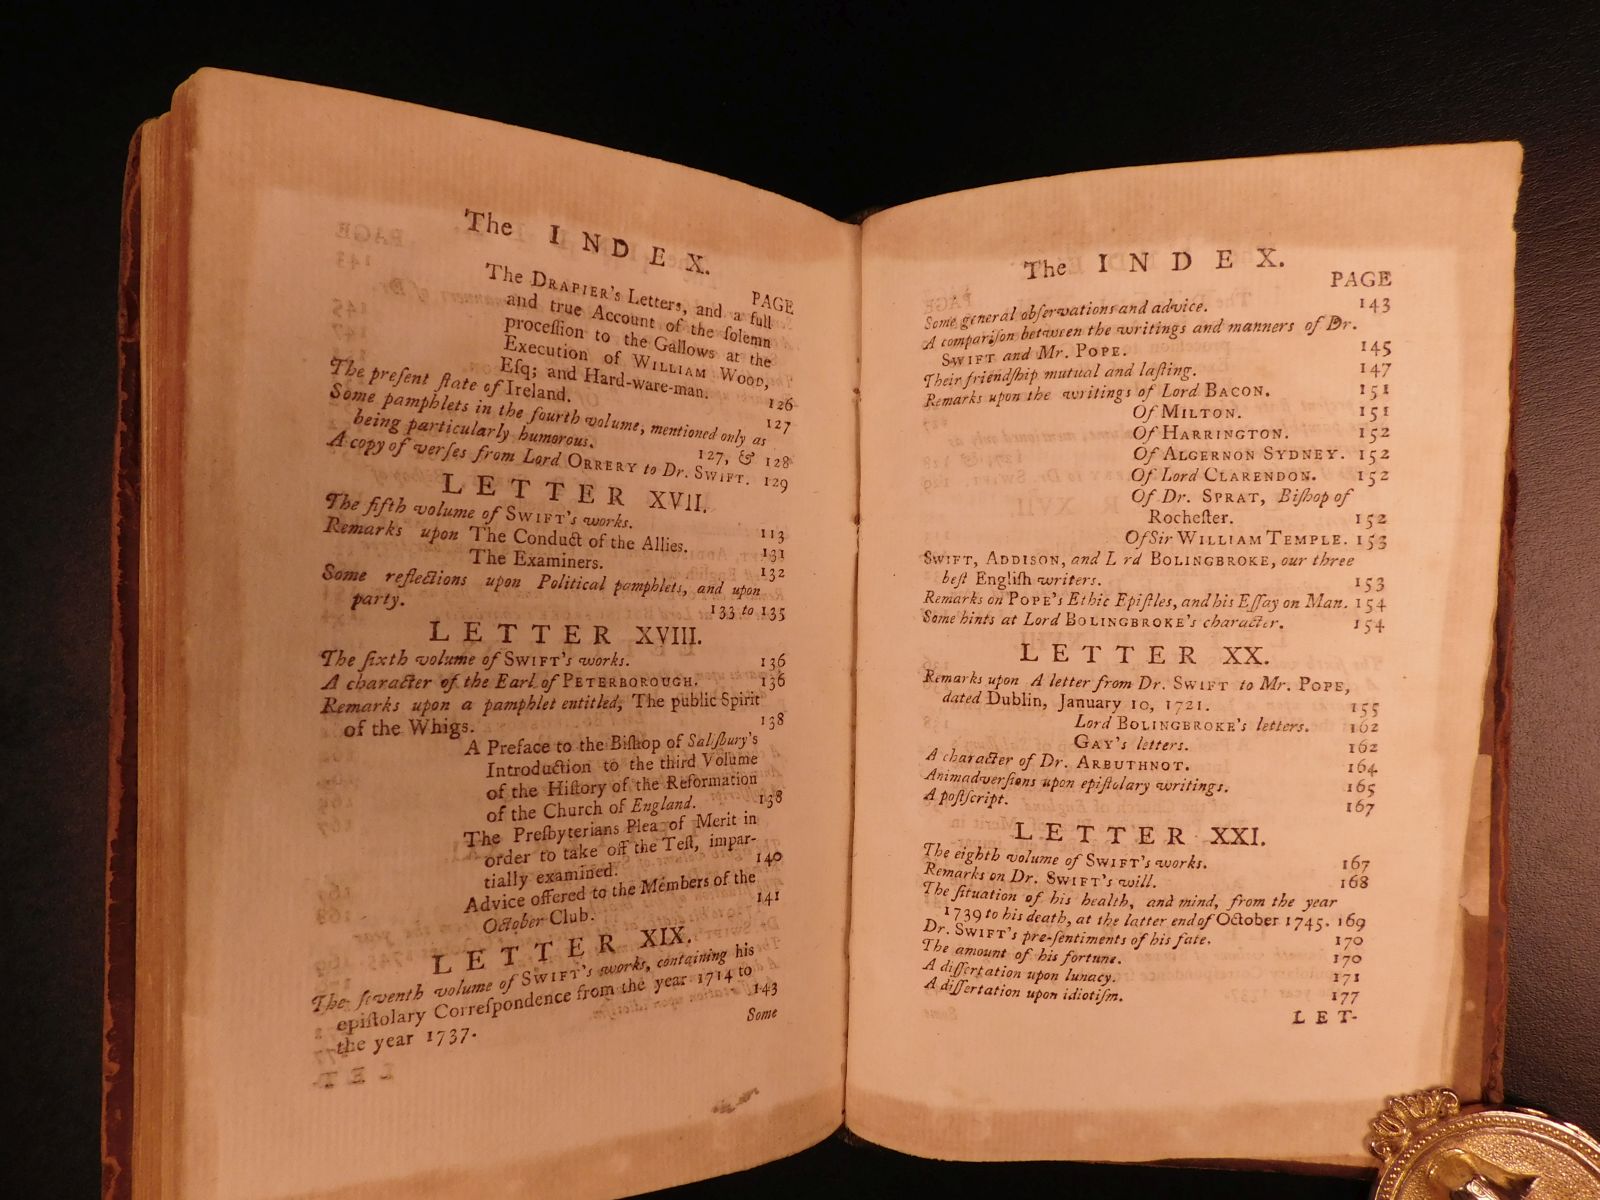 The INDEX.
PAGE
The DRAPIER's Letters, and a full
and true Account of the ſolemn
proceſſion to the Gallows at the
Execution of WILLIAM WOOD,
Eſq; and Hard-ware-man. 126
The preſent ſtate of Ireland. 127
Some pamphlets in the fourth volume, mentioned only as
being particularly humorous. 127, & 128
A copy of verſes from Lord ORRERY to Dr. SWIFT. 129
LETTER XVII.
The fifth volume of SWIFT's works. 113
Remarks upon The Conduct of the Allies. 131
The Examiners. 132
Some reflections upon Political pamphlets, and upon
party. 133 to 135
LETTER XVIII.
The ſixth volume of SWIFT's works. 136
A character of the Earl of PETERBOROUGH. 136
Remarks upon a pamphlet entitled, The public Spirit
of the Whigs. 138
A Preface to the Biſhop of Saliſbury's
Introduction to the third Volume
of the Hiſtory of the Reformation
of the Church of England. 138
The Preſbyterians Plea of Merit in
order to take off the Teſt, impar-
tially examined. 140
Advice offered to the Members of the
October Club. 141
LETTER XIX.
The ſeventh volume of SWIFT's works, containing his
epiſtolary Correſpondence from the year 1714 to
the year 1737. 143
Some
The INDEX.
PAGE
Some general obſervations and advice. 143
A compariſon between the writings and manners of Dr.
SWIFT and Mr. POPE. 145
Their friendſhip mutual and laſting. 147
Remarks upon the writings of Lord BACON. 151
Of MILTON. 151
Of HARRINGTON. 152
Of ALGERNON SYDNEY. 152
Of Lord CLARENDON. 152
Of Dr. SPRAT, Biſhop of
Rocheſter. 152
Of Sir WILLIAM TEMPLE. 153
SWIFT, ADDISON, and L rd BOLINGBROKE, our three
beſt Engliſh writers. 153
Remarks on POPE's Ethic Epiſtles, and his Eſſay on Man. 154
Some hints at Lord BOLINGBROKE's character. 154
LETTER XX.
Remarks upon A letter from Dr. SWIFT to Mr. POPE,
dated Dublin, January 10, 1721. 155
Lord BOLINGBROKE's letters. 162
GAY's letters. 162
A character of Dr. ARBUTHNOT. 164
Animadverſions upon epiſtolary writings. 165
A poſtſcript. 167
LETTER XXI.
The eighth volume of SWIFT's works. 167
Remarks on Dr. SWIFT's will. 168
The ſituation of his health, and mind, from the year
1739 to his death, at the latter end of October 1745. 169
Dr. SWIFT's pre-ſentiments of his fate. 170
The amount of his fortune. 170
A diſſertation upon lunacy. 171
A diſſertation upon idiotiſm. 177
LET-